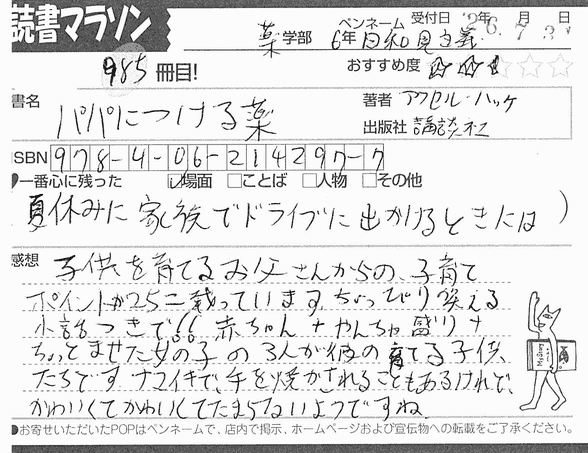 読書マラソン
薬学部 6年 ペンネーム 日和見主義 受付日 '26年 7月3日
985冊目! おすすめ度 ☆☆☆☆☆
書名 パパにつける薬
著者 アクセル・ハッケ
出版社 講談社
ISBN 978-4-06-214297-7
一番心に残った □場面 □ことば □人物 □その他
夏休みに家族でドライブに出かけるときには )
感想 子供を育てるお父さんからの、子育て
ポイントが25こ載っています。ちょっぴり笑える
小話つきで!! 赤ちゃん+やんちゃ盛り+
ちょっとませた女の子の3人が彼の育てる子供
たちです ナマイキで、手を焼かされることもあるけれど、
かわいくてかわいくてたまらないようですね。
●お寄せいただいたPOPはペンネームで、店内で掲示、ホームページおよび宣伝物への転載をご了承ください。